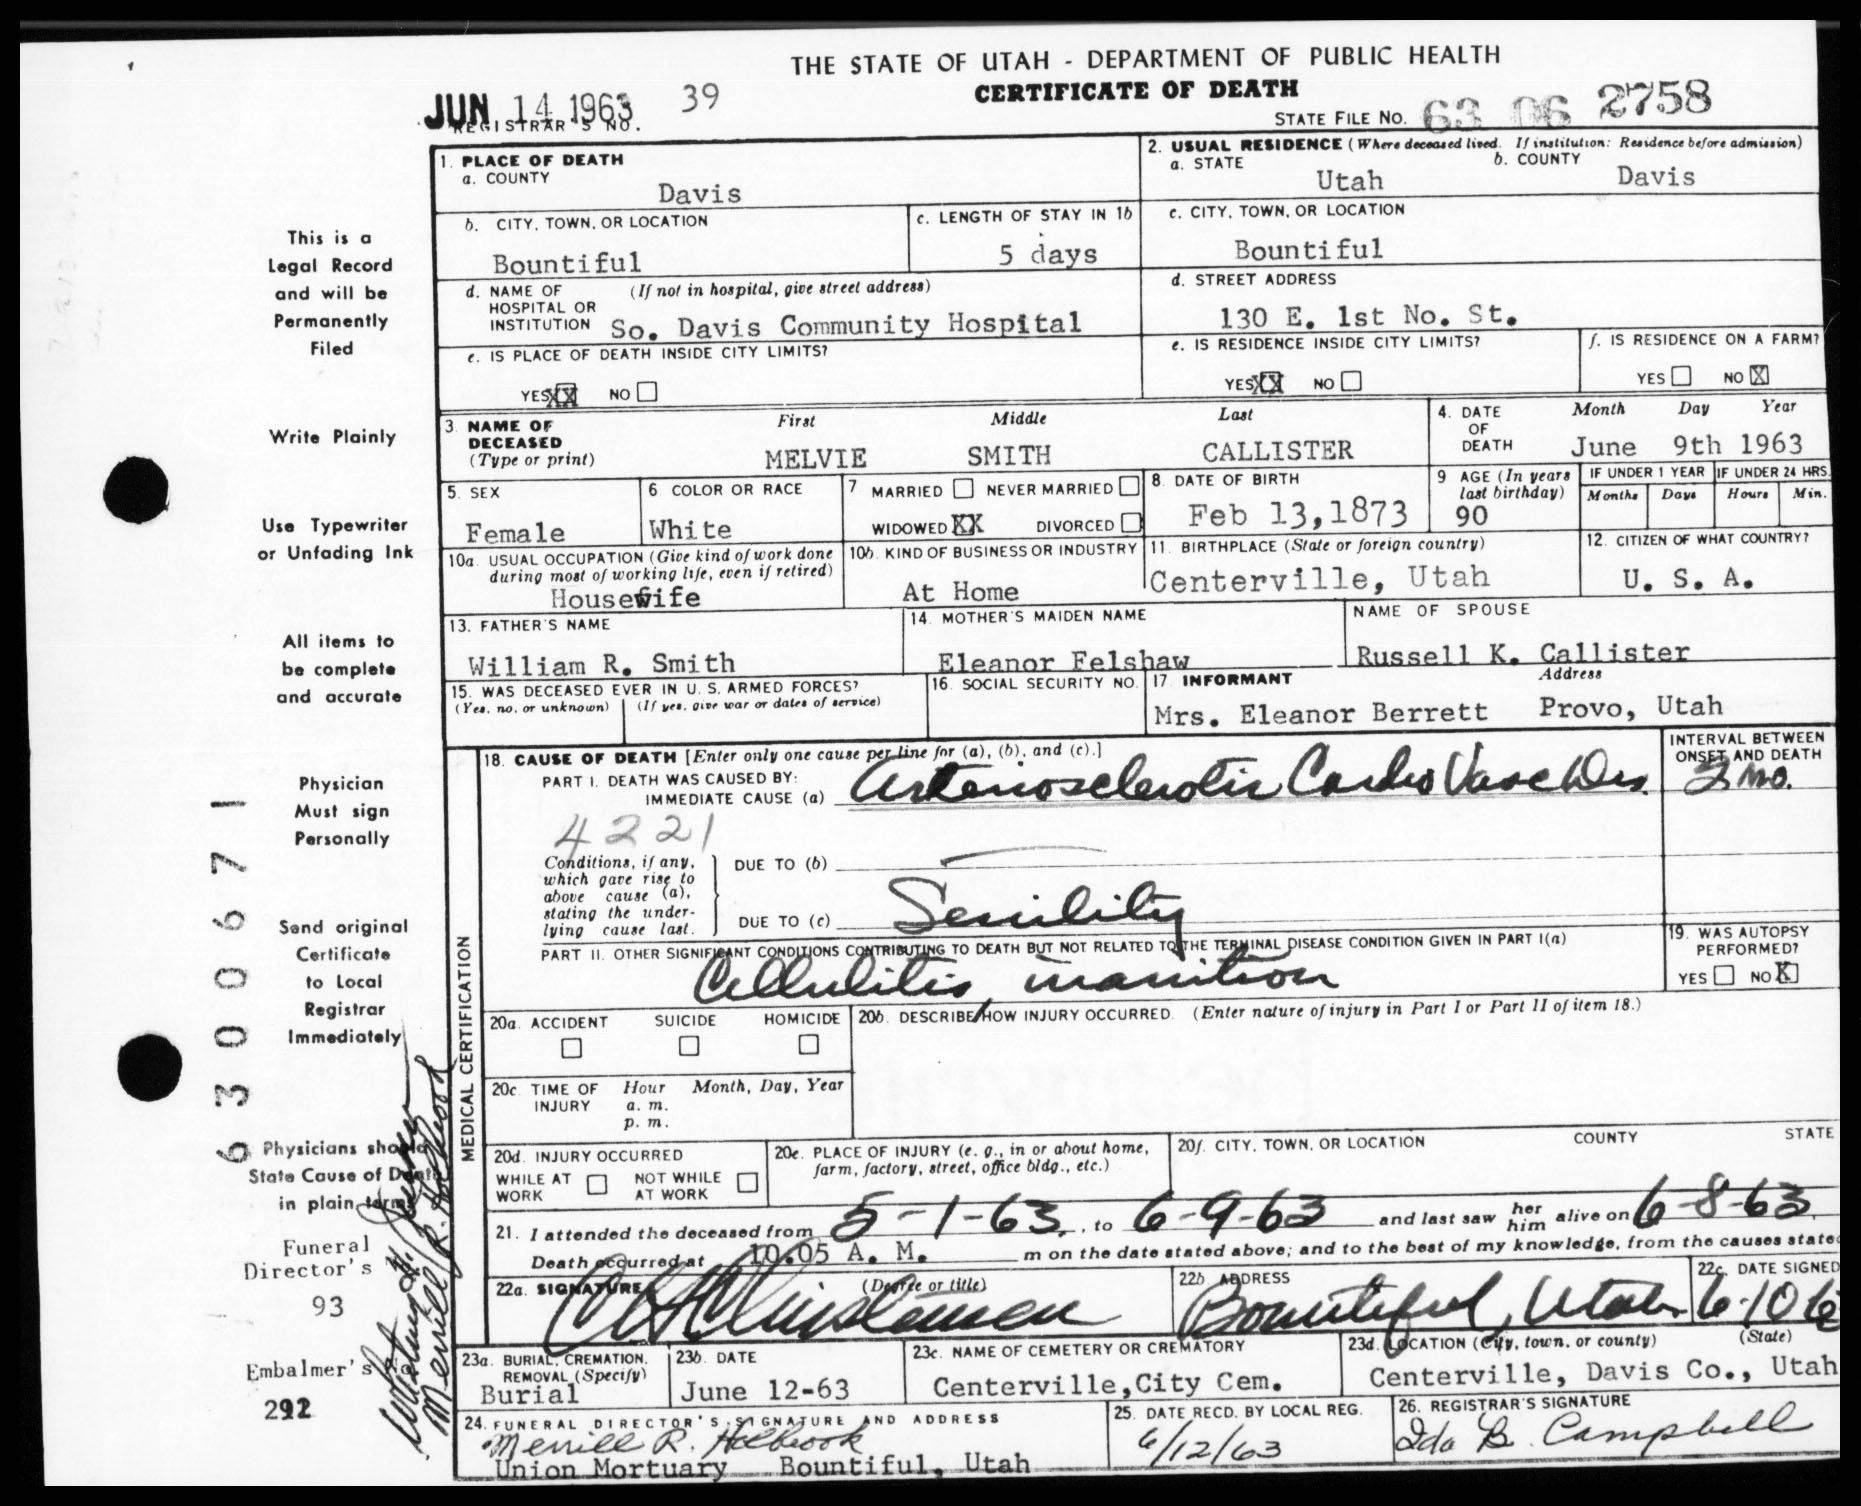 THE STATE OF UTAH - DEPARTMENT OF PUBLIC HEALTH
CERTIFICATE OF DEATH
JUN 14 1963 39
REGISTRAR'S NO.
STATE FILE NO. 63 06 2758
1. PLACE OF DEATH
a. COUNTY
Davis
2. USUAL RESIDENCE (Where deceased lived. If institution: Residence before admission)
a. STATE b. COUNTY
Utah Davis
b. CITY, TOWN, OR LOCATION
Bountiful
c. LENGTH OF STAY IN 1b
5 days
c. CITY, TOWN, OR LOCATION
Bountiful
d. NAME OF (If not in hospital, give street address)
HOSPITAL OR
INSTITUTION So. Davis Community Hospital
d. STREET ADDRESS
130 E. 1st No. St.
e. IS PLACE OF DEATH INSIDE CITY LIMITS?
YES XX NO
e. IS RESIDENCE INSIDE CITY LIMITS?
YES XX NO
f. IS RESIDENCE ON A FARM?
YES NO X
3. NAME OF DECEASED (Type or print)
First Middle Last
MELVIE SMITH CALLISTER
4. DATE OF DEATH
Month Day Year
June 9th 1963
5. SEX
Female
6 COLOR OR RACE
White
7 MARRIED NEVER MARRIED
WIDOWED XX DIVORCED
8. DATE OF BIRTH
Feb 13,1873
9 AGE (In years last birthday)
90
IF UNDER 1 YEAR IF UNDER 24 HRS.
Months Days Hours Min.
10a. USUAL OCCUPATION (Give kind of work done
during most of working life, even if retired)
Housewife
10b. KIND OF BUSINESS OR INDUSTRY
At Home
11. BIRTHPLACE (State or foreign country)
Centerville, Utah
12. CITIZEN OF WHAT COUNTRY?
U. S. A.
13. FATHER'S NAME
William R. Smith
14. MOTHER'S MAIDEN NAME
Eleanor Felshaw
NAME OF SPOUSE
Russell K. Callister
15. WAS DECEASED EVER IN U. S. ARMED FORCES?
(Yes, no, or unknown) (If yes, give war or dates of service)
16. SOCIAL SECURITY NO.
17. INFORMANT Address
Mrs. Eleanor Berrett Provo, Utah
MEDICAL CERTIFICATION
18. CAUSE OF DEATH [Enter only one cause per line for (a), (b), and (c).]
PART I. DEATH WAS CAUSED BY:
IMMEDIATE CAUSE (a) Arteriosclerotic Cardio Vasc Dis.
INTERVAL BETWEEN
ONSET AND DEATH
2 mo.
4221
Conditions, if any,
which gave rise to
above cause (a),
stating the under-
lying cause last.
DUE TO (b)
DUE TO (c) Senility
PART II. OTHER SIGNIFICANT CONDITIONS CONTRIBUTING TO DEATH BUT NOT RELATED TO THE TERMINAL DISEASE CONDITION GIVEN IN PART I(a)
Cellulitis, inanition
19. WAS AUTOPSY
PERFORMED?
YES NO X
20a. ACCIDENT SUICIDE HOMICIDE
20b. DESCRIBE HOW INJURY OCCURRED. (Enter nature of injury in Part I or Part II of item 18.)
20c. TIME OF INJURY Hour Month, Day, Year
a. m.
p. m.
20d. INJURY OCCURRED
WHILE AT WORK NOT WHILE AT WORK
20e. PLACE OF INJURY (e. g., in or about home,
farm, factory, street, office bldg., etc.)
20f. CITY, TOWN, OR LOCATION COUNTY STATE
21. I attended the deceased from 5-1-63, to 6-9-63 and last saw her him alive on 6-8-63.
Death occurred at 10.05 A. M. m on the date stated above; and to the best of my knowledge, from the causes state
22a. SIGNATURE (Degree or title)
22b. ADDRESS
Bountiful, Utah
22c. DATE SIGNED
6-10-6
23a. BURIAL, CREMATION,
REMOVAL (Specify)
Burial
23b. DATE
June 12-63
23c. NAME OF CEMETERY OR CREMATORY
Centerville,City Cem.
23d. LOCATION (City, town, or county) (State)
Centerville, Davis Co., Utah
24. FUNERAL DIRECTOR'S SIGNATURE AND ADDRESS
Merrill R. Holbrook
Union Mortuary Bountiful, Utah
25. DATE RECD. BY LOCAL REG.
6/12/63
26. REGISTRAR'S SIGNATURE
Ida B. Campbell
This is a
Legal Record
and will be
Permanently
Filed
Write Plainly
Use Typewriter
or Unfading Ink
All items to
be complete
and accurate
Physician
Must sign
Personally
Send original
Certificate
to Local
Registrar
Immediately
Physicians should
State Cause of Death
in plain terms
Funeral
Director's
93
Embalmer's No
292
6300671
Merrill R. Holbrook